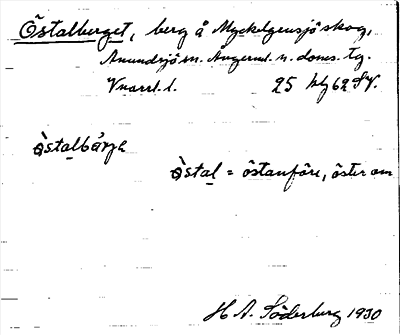 Östalberget, berg å Myckelgensjö skog,
Anundsjö sn. Ångerml. n. doms. tg.
Vnorrl. l. 25 hlj 62 SV.
östalbärje
östal = östanföre, öster om
H A. Söderberg 1930